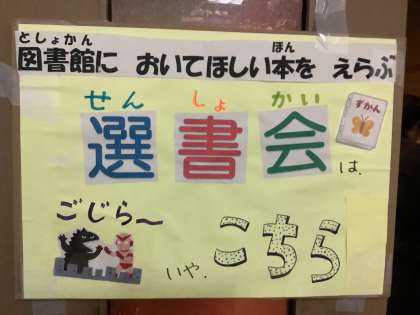 としょかん ほん
図書館に おいてほしい本を えらぶ
せん しょ かい
選書会は、
ずかん
ごじら〜
いや、こちら